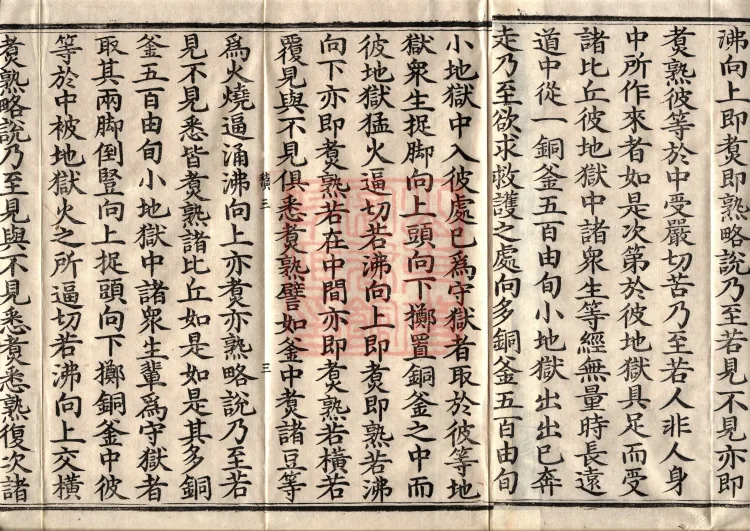 沸向上即煑即熟略說乃至若見不見亦即
煑熟彼等於中受嚴切苦乃至若人非人身
中所作來者如是次第於彼地獄具足而受
諸比丘彼地獄中諸衆生等經無量時長遠
道中從一銅釜五百由旬小地獄出出已奔
走乃至欲求救護之處向多銅釜五百由旬
小地獄中入彼處已爲守獄者取於彼等地
獄衆生捉脚向上頭向下擲置銅釜之中而
彼地獄猛火逼切若沸向上即煑即熟若沸
向下亦即煑熟若在中間亦即煑熟若橫若
覆見與不見俱悉煑熟譬如釜中煑諸豆等
三 三
爲火燒逼涌沸向上亦煑亦熟略說乃至若
見不見悉皆煑熟諸比丘如是如是其多銅
釜五百由旬小地獄中諸衆生輩爲守獄者
取其兩脚倒豎向上捉頭向下擲銅釜中彼
等於中被地獄火之所逼切若沸向上交橫
煑熟略說乃至見與不見悉煑悉熟復次諸